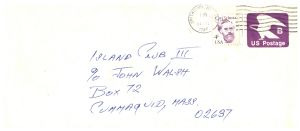 B
US Postage
USA
ISLAND CLUB III
% JOHN WALSH
BOX 72
CUMMAQUID, MASS.
02637